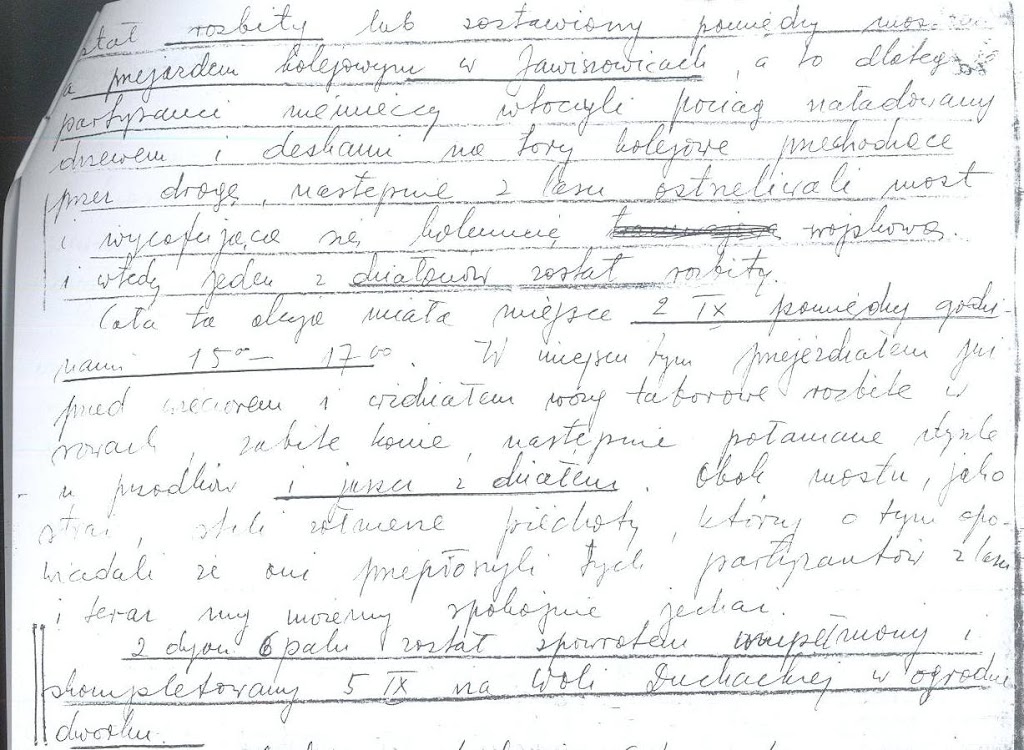 stał rozbity lub zostawiony pomiędzy mos
a przejazdem kolejowym w Jawiszowicach, a to dlatego
partyzanci niemieccy wtoczyli pociąg naładowany
drzewem i deskami na tory kolejowe przechodzące
przez drogę, następnie z lasu ostrzeliwali most
i wycofującą się kolumnę wojskową.
i wtedy jeden z działonów został rozbity.
Cała ta akcja miała miejsce 2 IX pomiędzy godzi-
nami 15⁰⁰ – 17⁰⁰. W miejscu tym przejeżdżałem już
przed wieczorem i widziałem wozy taborowe rozbite w
rowach, zabite konie, następnie połamane dyszle
u przodków i jaszcz z działem. Obok mostu, jako
straż, stali żołnierze piechoty, którzy o tym opo-
wiadali że oni przepłoszyli tych partyzantów z lasu
i teraz my możemy spokojnie jechać.
2 dyon 6 palu został spowrotem uzupełniony i
skompletowany 5 IX na Woli Duchackiej w ogrodzie
dworku.